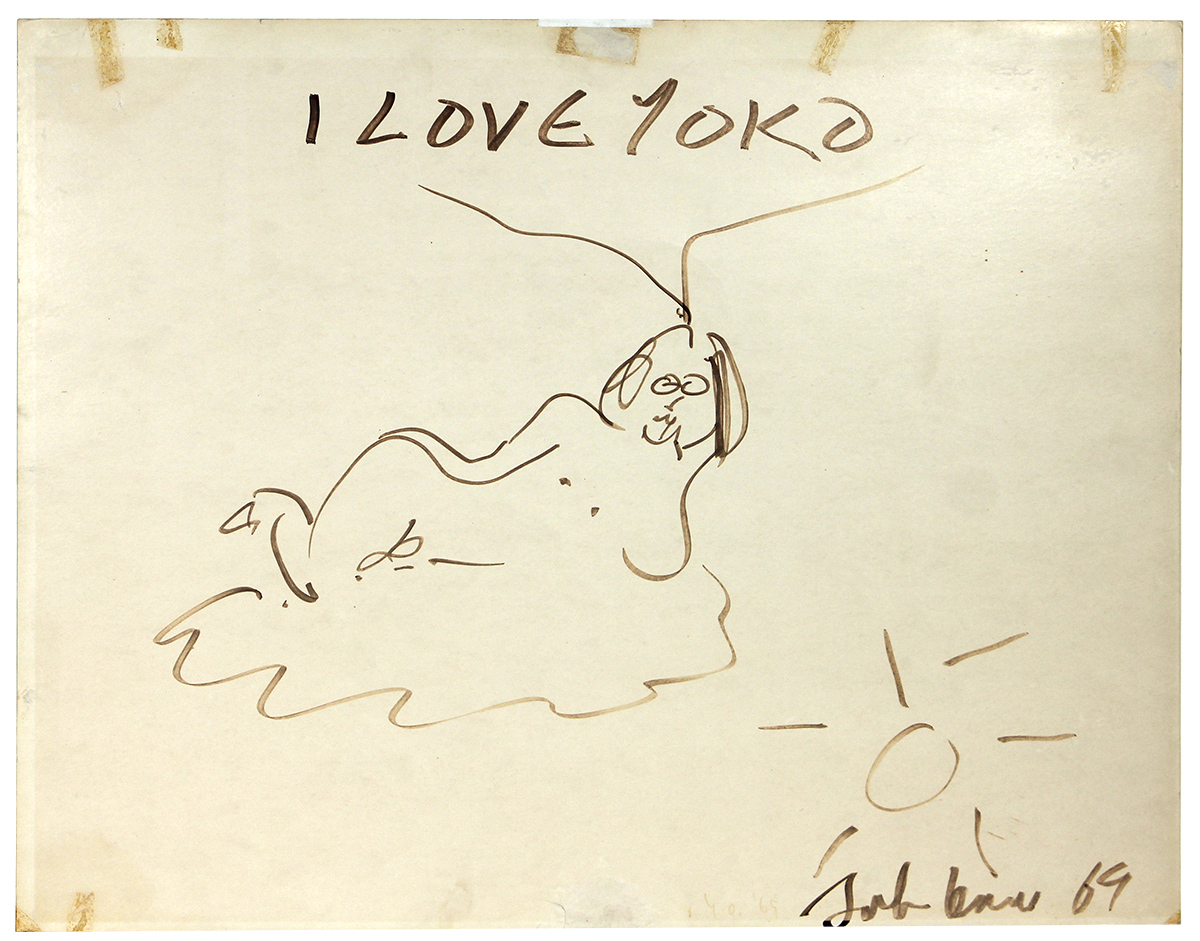 I LOVE YOKO
John Lennon 69